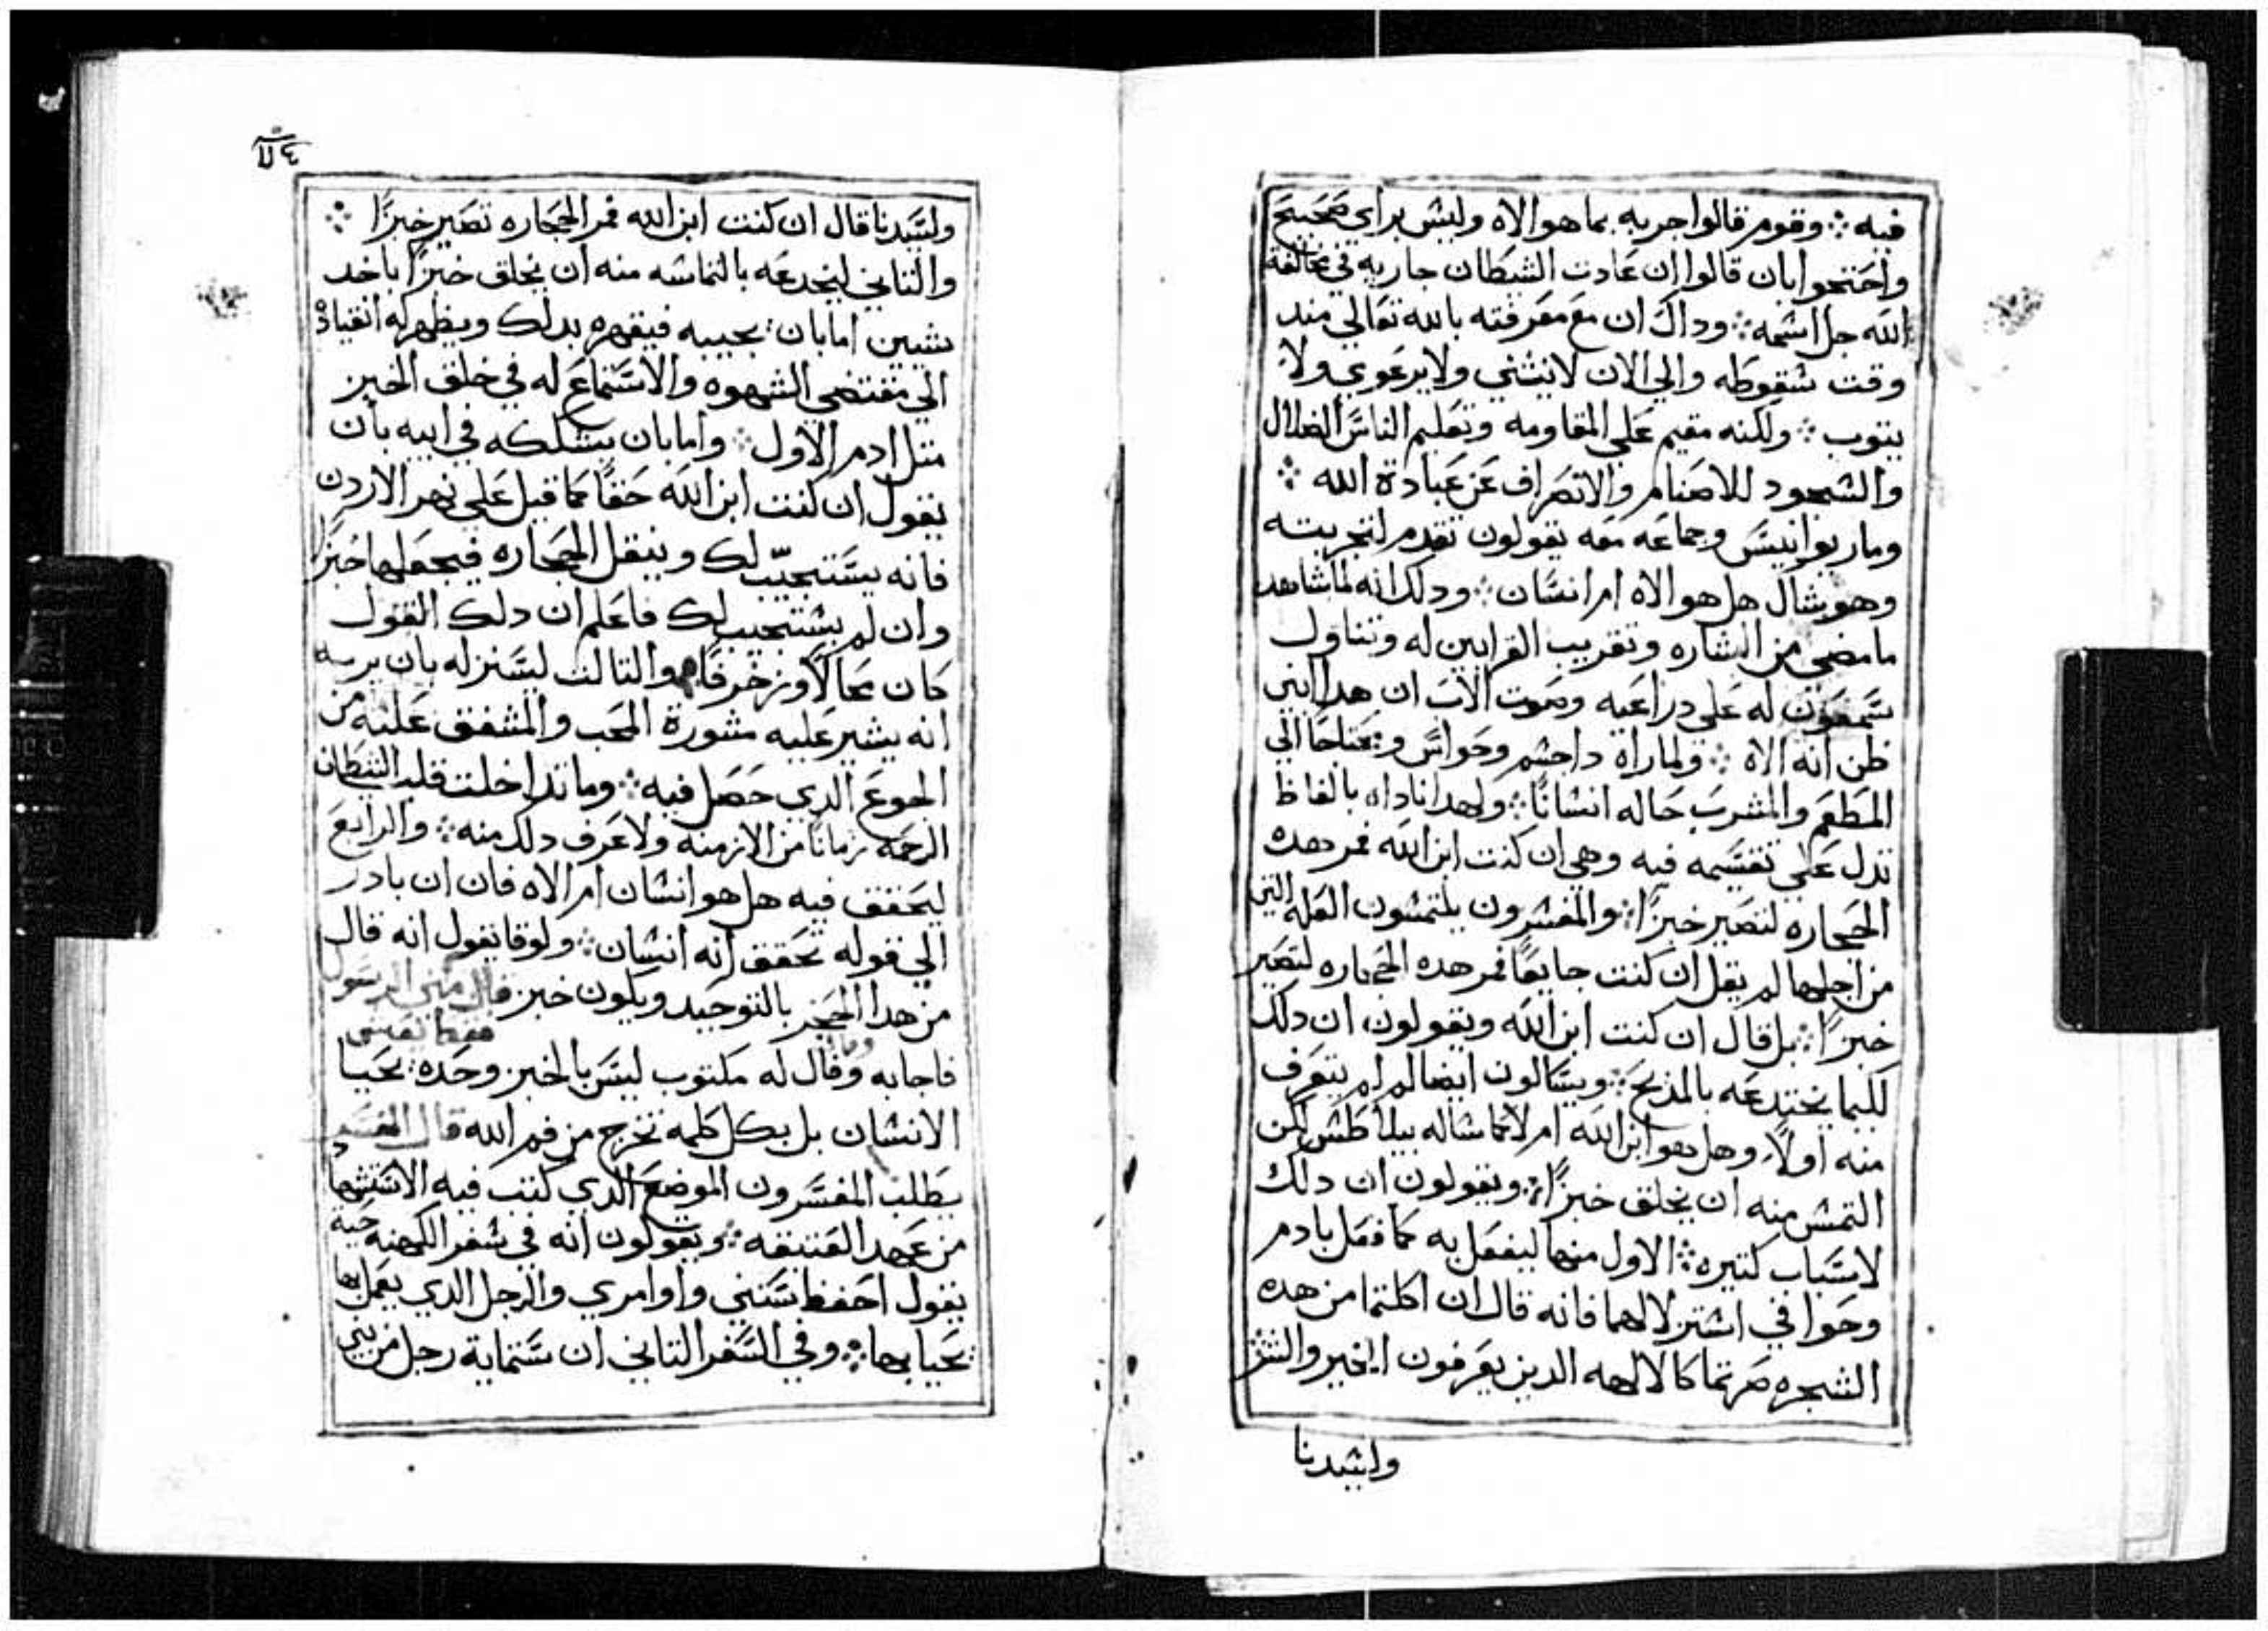 فيه ⁘ وقوم قالوا جربه بما هو الاه وليش براي صحيح
واحتجوا بان قالوا ان عادت الشيطان جاريه في مخالفة
الله جل اشمه ⁘ وداك ان مع معرفته بالله تعالي مند
وقت شقوطه والي الان لا ينثني ولا يرعوي ولا
يتوب ⁘ ولكنه مقيم علي المقاومه وتعليم الناس الضلال
والشجود للاصنام والانصراف عن عبادة الله ⁘
ومار يوانيس وجماعه معه يقولون تقدم لتجربته
وهو يشال هل هو الاه ام انسان ⁘ ودلك انه لما شاهد
ما مضي من البشاره وتقريب القرابين له وتناول
سمعون له علي دراعيه وصوت الاب ان هدا ابني
ظن انه الاه ⁘ ولما راه دا جشم وحواس ومحتاجا الي
المطعم والمشرب خاله انشانا ⁘ ولهدا ناداه بالفاظ
تدل علي تقسمه فيه وهي ان كنت ابن الله فمر هده
الحجاره لتصير خبزا ⁘ والمفسرون يلتمشون العله التي
من اجلها لم يقل ان كنت جايعا فمر هده الحجاره لتصير
خبزا ⁘ بل قال ان كنت ابن الله ويقولون ان دلك
لكيما يختدعه بالمديح ⁘ ويسالون ايضا لم لم يتعرف
منه اولا وهل هو ابن الله ام لا كما شاله بيلاطش لكن
التمش منه ان يخلق خبزا ⁘ ويقولون ان دلك
لاسباب كتيره ⁘ الاول منها ليفعل به كما فعل بادم
وحوا في اشتزلالهما فانه قال ان اكلتما من هده
الشجره صرتما كالالهه الدين يعرفون الخير والشر
ولشيدنا
ولسيدنا قال ان كنت ابن الله فمر الحجاره تصير خبزا ⁘
والتاني ليخدعه بالتماشه منه ان يخلق خبزا باحد
شيين اما بان يجيبه فيقهره بدلك ويظهر له انقياده
الي مقتضي الشهوه والاستماع له في خلق الخبز
متل ادم الاول ⁘ واما بان يشككه في ابيه بان
يقول ان كنت ابن الله حقا كما قيل علي نهر الاردن
فانه يستجيب لك وينقل الحجاره فيجعلها خبزا
وان لم يشتجيب لك فاعلم ان دلك القول
كان محالا وزخرفا ⁘ والتالت ليستزله بان يريه
انه يشير عليه مشورة المحب والمشفق عليه من
الجوع الدي حصل فيه ⁘ وما تداخلت قلب الشيطان
الرحمه زمانا من الازمنه ولا عرف دلك منه ⁘ والرابع
ليحقق فيه هل هو انشان ام الاه فان ان بادر
الي قوله تحقق انه انشان ⁘ ولوقا يقول انه قال
من هدا الحجر بالتوحيد ويكون خبز قال متي الرسول
فاجابه وقال له مكتوب ليس بالخبز وحده يحيا
الانشان بل بكل كلمه تخرج من فم الله قال المفسر
يطلب المفسرون الموضع الدي كتب فيه الاستشهاد
من عهد العتيقه ⁘ ويقولون انه في شفر الكهنه حيت
يقول احفظ سنني واوامري والرجل الدي يعمل بها
يحيا بها ⁘ وفي السفر التاني ان ستماية رجل من بني